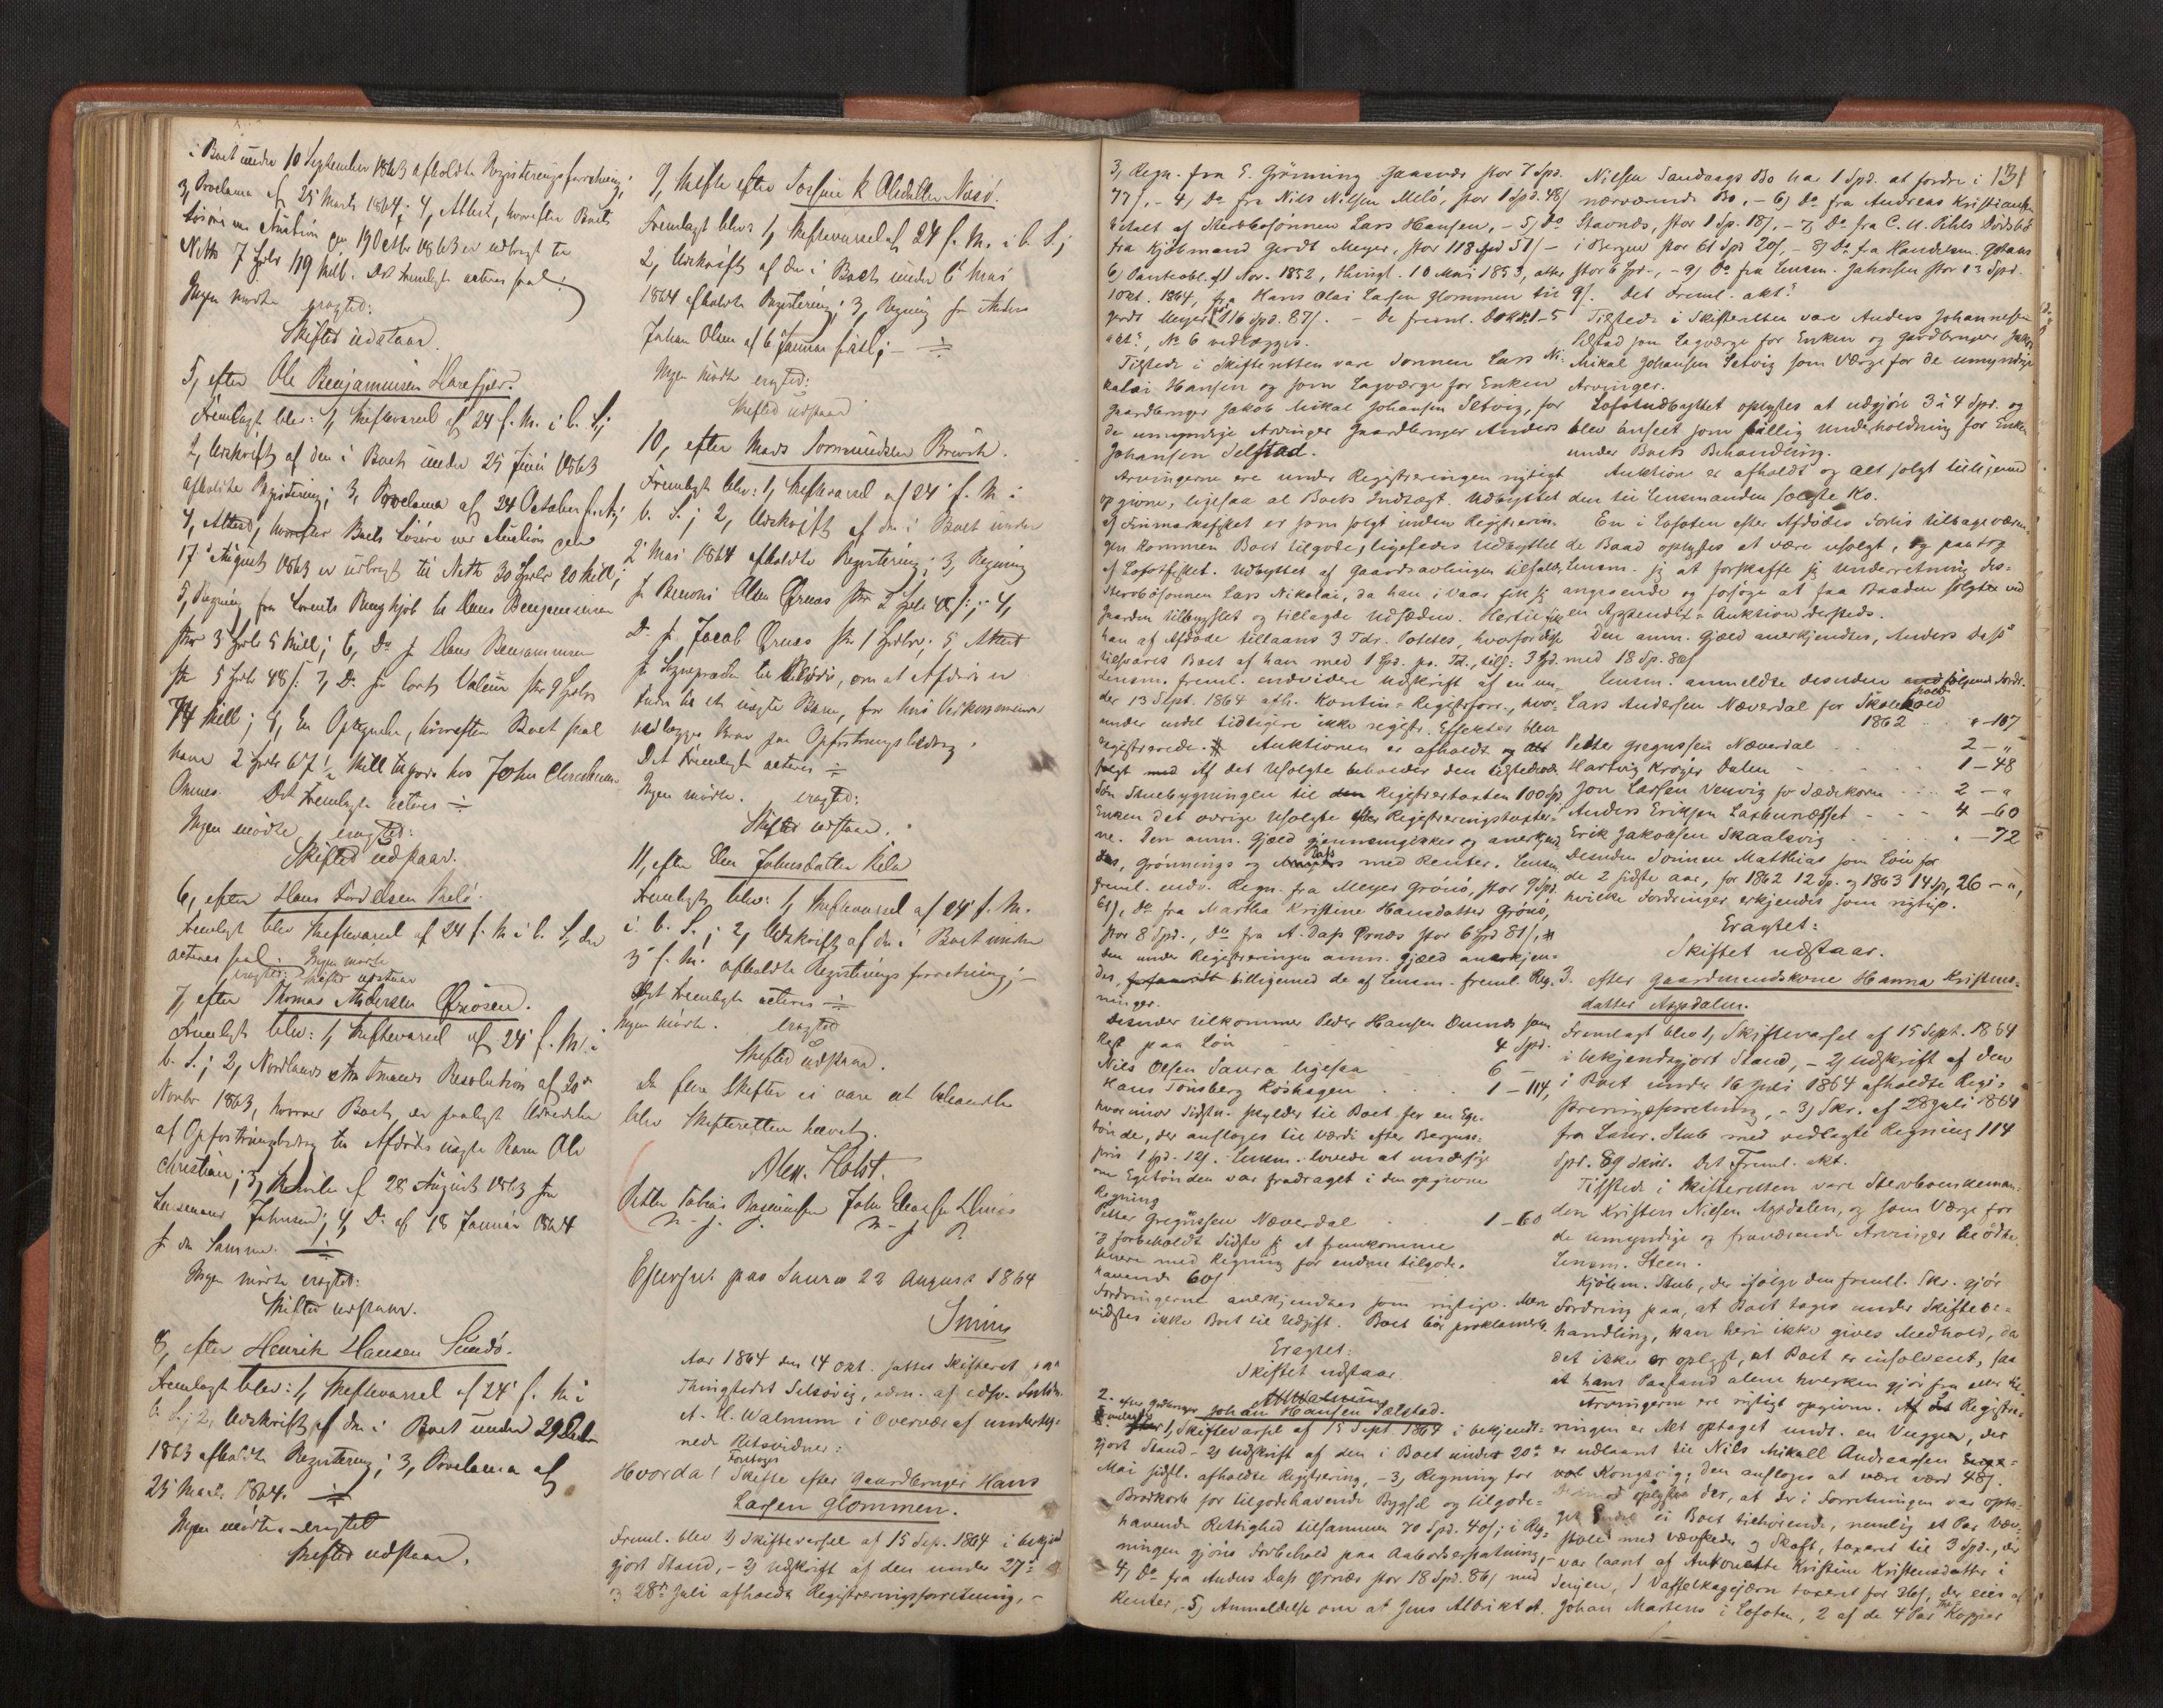 i Boet under 10 September 1863 afholdte Registreringsforretning;
3, Proclama af 25 Marts 1864; 4, Attest, hvorefter Boets
Løsøre ved Auction den 19 Octbr 1863 er udbragt til
Netto 7 Spdlr 119 Skill. Det Fremlagte acteres saal.
Ingen mødte eragted:
Skiftet udstaar.
5, efter Ole Benjaminsen Harefjær.
Fremlagt blev: 1, Skiftevarsel af 24 f. M. i b. S;
2, Udskrift af den i Boet under 25 Juni 1863
afholdte Registrering; 3, Proclama af 24 October f. A;
4, Attest, hvorefter Boets Løsøre ved Auction den
17 August 1863 er udbragt til Netto 30 Spdlr 20 Skill;
5, Regning fra Hans Benjaminsen
stor 3 Spdlr 5 Skill; 6, Do fr Hans Benjaminsen
str 5 Spdlr 48 s: 7, Do fr str 9 Spdlr
74 Skill; 8, En Optegnelse, hvorefter Boet skal
have 2 Spdlr 67 1/2 Skill tilgode hos John
Det Fremlagte acteres
Ingen mødte eragted:
Skiftet udstaar.
6, efter Hans
Fremlagt blev Skiftevarsel af 24 f. M i b. S, der
acteres saal. Ingen mødte
eragted: Skiftet udstaar
7, efter Thomas Andersen Ørnøsen.
Fremlagt blev: 1, Skiftevarsel af 24 f. M. i
b. S.; 2, Nordlands Amtmands Resolution af 20de
Novbr 1863, hvorved Boet er paalagt Udredelse
af Opfostringsbidrag til Afdødes uægte Barn Ole
Christian; 3, Skrivelse af 28 August 1863 fra
Lensmand Johnsen; 4, Do af 18 Januar 1864
fr den Samme.
Ingen mødte eragted:
Skiftet udstaar.
8, efter Henrik Hansen Sundø.
Fremlagt blev: 1, Skiftevarsel af 24 f. M. i
b. S.; 2, Udskrift af den i Boet under 29
1863 afholdte Registrering; 3, Proclama af
25 Marts 1864.
Ingen mødte eragted
Skiftet udstaar.
9, Skifte efter
Fremlagt blev: 1, Skiftevarsel af 24 f. M. i b. S;
2, Udskrift af den i Boet under 6 Mai
1864 afholdte Registrering; 3, Regning fra Anders
Johan Olsen af 6 Januar sidstl;
Ingen mødte eragted:
Skiftet udstaar
10, efter Mads
Fremlagt blev: 1, Skiftevarsel af 24 f. M i
b. S.; 2, Udskrift af den i Boet under
2 Mai 1864 afholdte Registrering; 3, Regning
fr Benoni Olsen Ørnes str 2 Spdlr 48 s:; 4,
Do fr Jacob Ørnes str 1 Spdlr; 5, Attest
fr Sognepræsten til Rødø, om at Afdøde er
Fader til et uægte Barn, for hvis Vedkommende
vedlægges Krav paa Opfostringsbidrag.
Det Fremlagte acteres
Ingen mødte. eragted:
Skiftet udstaar.
11, efter Elen Johnsdatter Kila
Fremlagt blev: 1, Skiftevarsel af 24 f. M.
i b. S.; 2, Udskrift af den i Boet under
3 f. M. afholdte Registrerings forretning;
Det Fremlagte acteres
Ingen mødte. eragted
Skiftet udstaar.
Da flere Skifter ei vare at behandle
blev Skifteretten hævet.
Alex. Holst.
Petter Tobias Rasmussen John
m. f. P. m. f. P.
Efterseet paa 22 August 1864
Aar 1864 den 14 Okt. sattes Skifteret paa
Thingstedet Selsøvig, adm. af edsv. Fuldm.
A. H. Walnum i Overvær af underteg-
nede Retsvidner:
Hvorda! Foretoges Skifte efter Gaardbruger Hans
Larsen Glommen.
Freml. blev 1) Skiftevarsel af 15 Sep. 1864 i bekjend
gjort Stand, - 2) Udskrift af den under 27de
og 28de Juli afholdte Registreringsforretning, -
131
3) Regn. fra E. Grönning Gaasvær stor 7 Spd.
77 s, - 4) Do fra Nils Nilsen Melø, stor 1 Spd. 48 s
betalt af Stervbosönnen Lars Hansen, - 5) Do
fra Kjöbmand Gerdt Meyer, stor 118 Spd 51 s -
6) Panteobl. af 1 Nov. 1852, thingl. 10 Mai 1853, efter
1 Okt. 1864, fra Hans Olai Larsen Glommen til
Gerdt Meyer 116 Spd. 87 s. - De freml. Dok. 1-5
akt., No 6 vedlægges.
Tilstede i Skifteretten vare Sönnen Lars Ni-
kolai Hansen og som Lagværge for Enken
Gaardbruger Jakob Mikal Johansen Setvig, for
de umyndige Arvinger Gaardbruger Anders
Johansen Selstad.
Arvingerne ere under Registreringen rigtigt
opgivne, ligesaa al Boets Indtægt. Udbyttet
af Finmarksfisket er som solgt under Registrerin-
gen kommen Boet tilgode, ligeledes Udbyttet
af Lofotfisket. Udbyttet af Gaardsavlingen tilfalder
Stervbosönnen Lars Nikolai, da han i Vaar fik sig
Gaarden tilbygslet og tillagde Udsæden. Hertil fik
han af Afdöde tillaans 3 Tdr. Potetes, hvorfor
tilsvares Boet af ham med 1 Spd. pr. Td., tils: 3 Spd.
Lensm. freml. endvidere Udskrift af en un-
der 13 Sept. 1864 afh. Kontin= Registrforr., hvor-
under endel tidligere ikke registr. Effekter blev
registrerede. Auktionen er afholdt og Alt
solgt med Af det Usolgte beholder den tilstedevær.
Sön Stuebygningen til den Registrertaxten 100 Spd,
Enken det övrige Usolgte efter Registreringstaxter-
ne. Den anm. Gjæld gjennemgikkes og anerkjend-
tes, Grönnings og Dass med Renter. Lensm.
freml. endv. Regn. fra Meyer Grönö, stor 9 Spd.
61 s, Do fra Martha Kristine Hansdatter Grönö,
stor 8 Spd., Do fra A. Dass Ørnæs stor 6 Spd 81 s,
Den under Registreringen anm. Gjæld anerkjen-
des, forsaavidt tilligemed de af Lensm. freml. Reg-
ninger.
Desuden tilkommer Peder Hansen som
Rest paa Lön 4 Spd.
Nils Olsen Saura ligesaa 6 -
Hans Tönsberg Roshagen 1 - 114,
hvorimod Sidstn. skylder til Boet for en Ege-
tönde, der ansloges til Værdi efter Bergens-
pris 1 Spd. 12 s. Lensm. lovede at undersöge
om Egetönden var fradraget i den opgivne
Regning
Petter Gregussen Næverdal 1 - 60
og forbeholdt Sidste sig at fremkomme
senere med Regning for endnu tilgode-
havende 60 s
Fordringerne anerkjendtes som rigtige. Men
vidstes ikke Boet til Udgift. Boet bör proklameres.
Eragtet:
Skiftet udstaar.
A H Walnum
2. efter Gaardbruger Johan Hansen Sælstad.
Fremlagt 1, Skiftevarsel af 15 Sept. 1864 i bekjendt-
gjort Stand - 2) Udskrift af den i Boet under 20de
Mai sidstl. afholdte Registrering, - 3) Regning for
Brodkorb for tilgodehavende Bygsel og tilgode-
havende Rettighed tilsammen 70 Spd. 40 s; i Reg-
ningen gjöres Forbehold paa Aabodserstatning, -
4) Do fra Anders Dass Ørnæs stor 18 Spd. 86 s med
Renter, - 5) Anmeldelse om at Jens Albrikt A.
Nilsen Sandaags Bo har 1 Spd. at fordre i
nærværende Bo, - 6) Do fra Andreas Kristiansen
Stavnds, stor 1 Sp. 18 s, - 7) Do fra C. U. Pihls Dödsbo
i Bergen stor 61 Spd 20 s, - 8) Do fra Handelsm. Johans
stor 6 Spd., - 9) Do fra Lensm. Jahnsen stor 13 Spd.
9 s. Det Freml. akt.
Tilstede i Skifteretten vare Anders Johannesen
Selstad som Lagværge for Enken og Gaardbruger Jakob
Mikal Johansen Setvig som Værge for de umyndige
Arvinger.
Lofotudbyttet oplystes at udgjöre 3 à 4 Spd. og
blev anseet som billig Underholdning for Enken
under Boets Behandling.
Auktion er afholdt og Alt solgt tilligemed
den til Lensmanden solgte Ko.
En i Lofoten efter Afdödes Forlis tilbageværen-
de Baad oplystes at være usolgt, og paatog
Lensm. sig at forskaffe sig Underretning des-
angaaende og forsöge at faa Baaden solgt ved
en Appendix= Auktion dersteds.
Den anm. Gjæld anerkjendtes, Anders Dass's
med 18 Sp. 86 s
Lensm. anmeldte desuden endv. fölgende Fordr.
Lars Andersen Næverdal for Skolehold
1862 " - 107
Petter Gregussen Næverdal 2 - "
Hartvig Kröyer Dalen 1 - 48
Jon Larsen Venvig for Sædekorn 2 - "
Anders Eriksen Laxbunæsset 4 - 60
Erik Jakobsen Skaalsvig " - 72
Desuden Sönnen Matthias som Lön for
de 2 sidste Aar, for 1862 12 Sp. og 1863 14 Sp, 26 - ",
hvilke Fordringer erkjendes som rigtige.
Eragtet:
Skiftet udstaar.
3. efter Gaardmandskone Hanna Kristens-
datter Aasdalen.
Fremlagt blev 1, Skiftevarsel af 15 Sept. 1864
i bekjendtgjort Stand, - 2) Udskrift af den
i Boet under 16 Juli 1864 afholdte Regi-
streringsforretning, - 3) Skr. af 28 Juli 1864
fra Laur. Stub med vedlagte Regning 114
Spd. 89 Skill. Det Freml. akt.
Tilstede i Skifteretten vare Stervboenkeman-
den Kristen Nielsen Aasdalen, og som Værge for
de umyndige og fraværende Arvinger
Lensm. Steen.
Kjöbm. Stub, der ifölge den freml. Skr. gjör
Fordring paa, at Boet tages under Skiftebe-
handling, kan heri ikke gives Medhold, da
det ikke er oplyst, at Boet er insolvent, saa
at hans Paastand alene hverken gjör fra eller til.
Arvingerne ere rigtigt opgivne. Af Registre-
ringen er Alt optaget undt. en Vugge, der
er udlaant til Nils Mikall Andreassen
Kongsvig; den ansloges at være værd 48 s.
Derimod oplystes der, at der i Forretningen var opta-
get ei Boet tilhörende, nemlig et Par Væv-
stole med Vævskeder og Skaft, taxeret til 3 Spd., der
var laant af Antonette Kristine Kristensdatter i
Senjen, 1 Vaffelkagejern taxeret for 36 s, der eies af
Johan Martens i Lofoten, 2 af de 4 Par Kopper